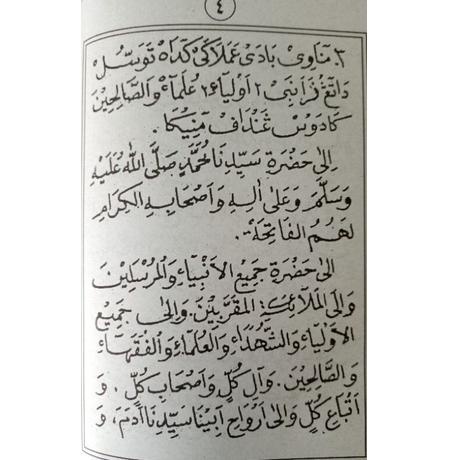 ٤
٣. مناوى بادى عملاكى كداه توسّل
داتڠ فرانبى ٢ أولياء ٢ عُلَمَاءْ وَالصَّالِحِيْنَ
كادوس ڠنداف مڠيكا.
اِلىٰ حَضْرَةِ سَيِّدِنَا مُحَمَّدٍ صَلَّى اللّٰهُ عَلَيْهِ
وَسَلَّمَ وَعَلىٰ اٰلِهِ وَاَصْحَابِهِ الْكِرَامِ
لَهُمُ الفَاتِحَةْ.
الىٰ حَضْرَةِ جَمِيْعِ الْاَنْبِيَاءِ وَالْمُرْسَلِيْنَ
وَاِلَى الْمَلَائِكَةِ الْمُقَرَّبِيْنَ. وَاِلىٰ جَمِيْعِ
الْاَوْلِيَاءِ وَالشُّهَدَاءِ وَالْعُلَمَاءِ وَالْفُقَهَاءِ
وَالصَّالِحِيْنَ. وَآلِ كُلٍّ وَاَصْحَابِ كُلٍّ. وَ
اَتْبَاعِ كُلٍّ وَاِلىٰ اَرْوَاحِ اَبِيْنَا سَيِّدِنَا اٰدَمَ، وَ